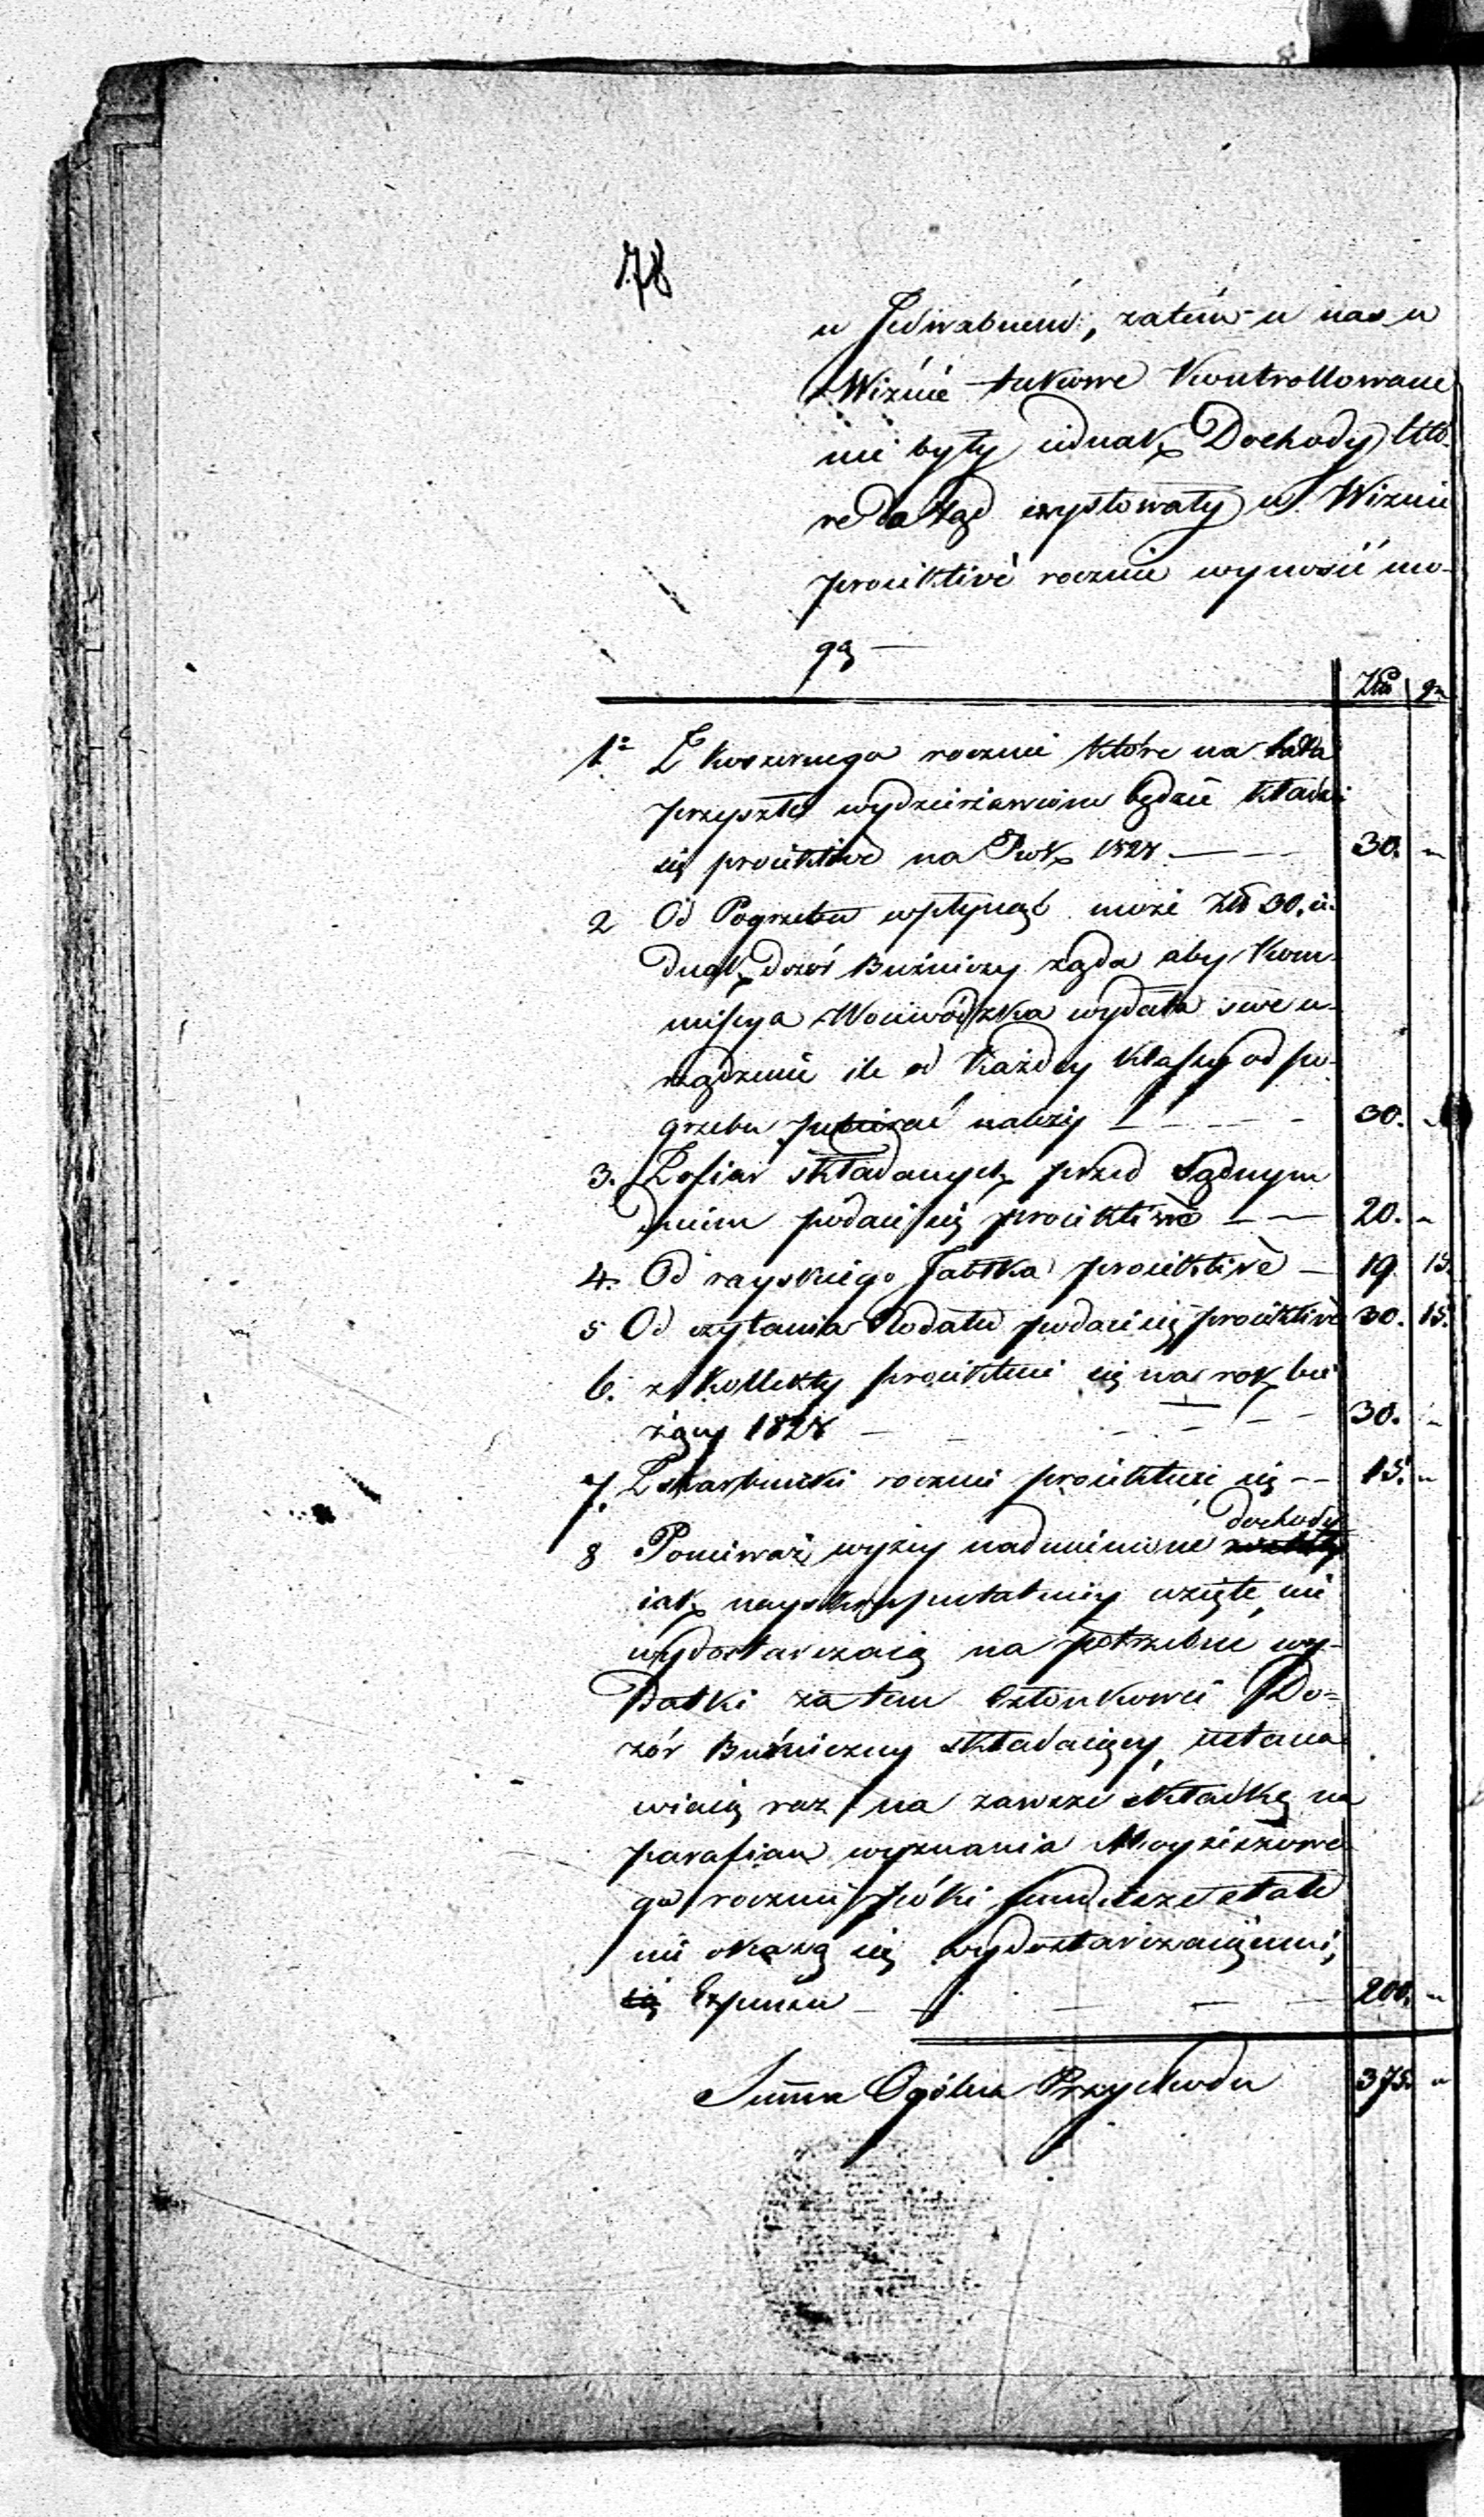 78
w Jedwabnem, zatém u nas w
Wiźnie takowe Kontrollowane
nie były iednak Dochody któ-
re dotąd exystowały w Wiznie
proiektivè rocznie wynosić mo-
gą —
Złp gr
1º Z koszernego rocznie które na lata
przyszłe wydzierżawione będzie kładzie
się proiektivè na Rok 1828 — 30. „
2 Od Pogrzebu wpłynąć może Złp 30, ie-
dnak dozór Bużniczy rząda aby Kom-
missya Woiewódzka wydała swe u-
rządzenie ile od każdey klassy od po-
grzebu pobierać należy — 30. „
3. Z ofiar składanych przed Sądnym
Dniem podaie się proiektivè — 20. „
4. Od rayskiego Jabłka proiektivè — 19 15.
5 Od czytania Rodału podaie się proiektivè 30. 15.
6. z kollekty proiektuie się na rok bie-
żący 1828 — 30. „
7. Z skarbonki rocznie proiektuie się — 15. „
8 Ponieważ wyżey nadmienione dochody
iak nayskrupulatniey wzięte, nie
wydostarczaią na potrzebne wy-
datki zatem Członkowie Do-
zór Bużniczny składaiący, ustana-
wiaią raz na zawsze składkę na
parafian wyznania Moyżeszowe-
go rocznie póki fundusze stałe
nie okażą się wydostarczaiącemi,
200. „
Summa Ogólna Przychodu 375. „